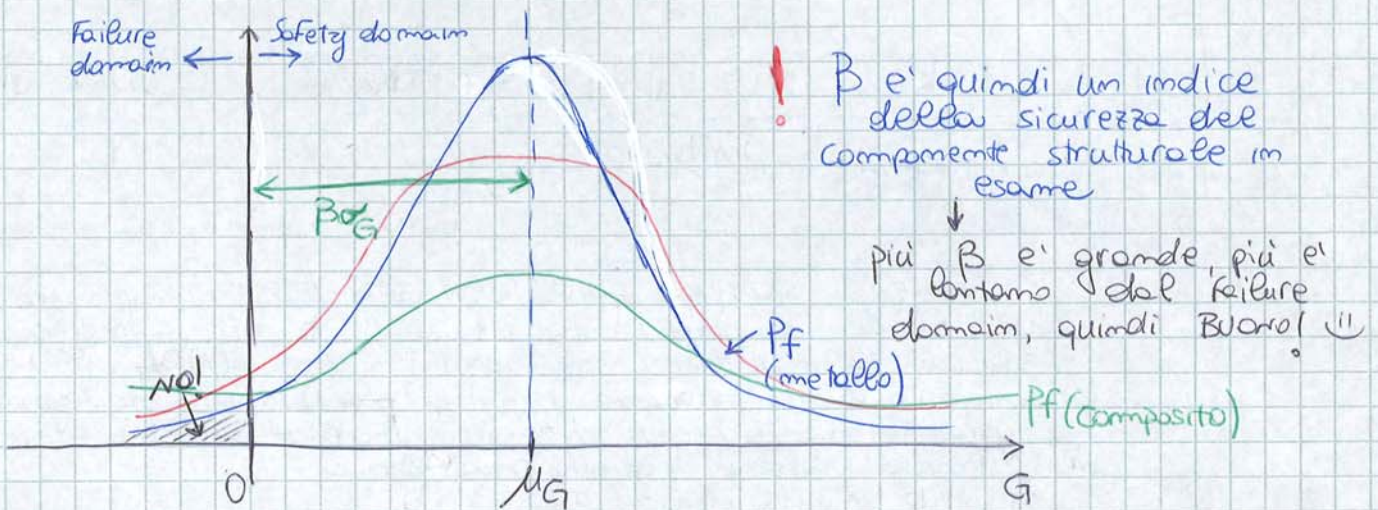 Failure domain
Safety domain
! β e' quindi un indice
della sicurezza del
componente strutturale in
esame
più β e' grande, più e'
lontano dal failure
domain, quindi BUONO!
βσG
Pf
(metallo)
NO!
Pf (composito)
0
μG
G